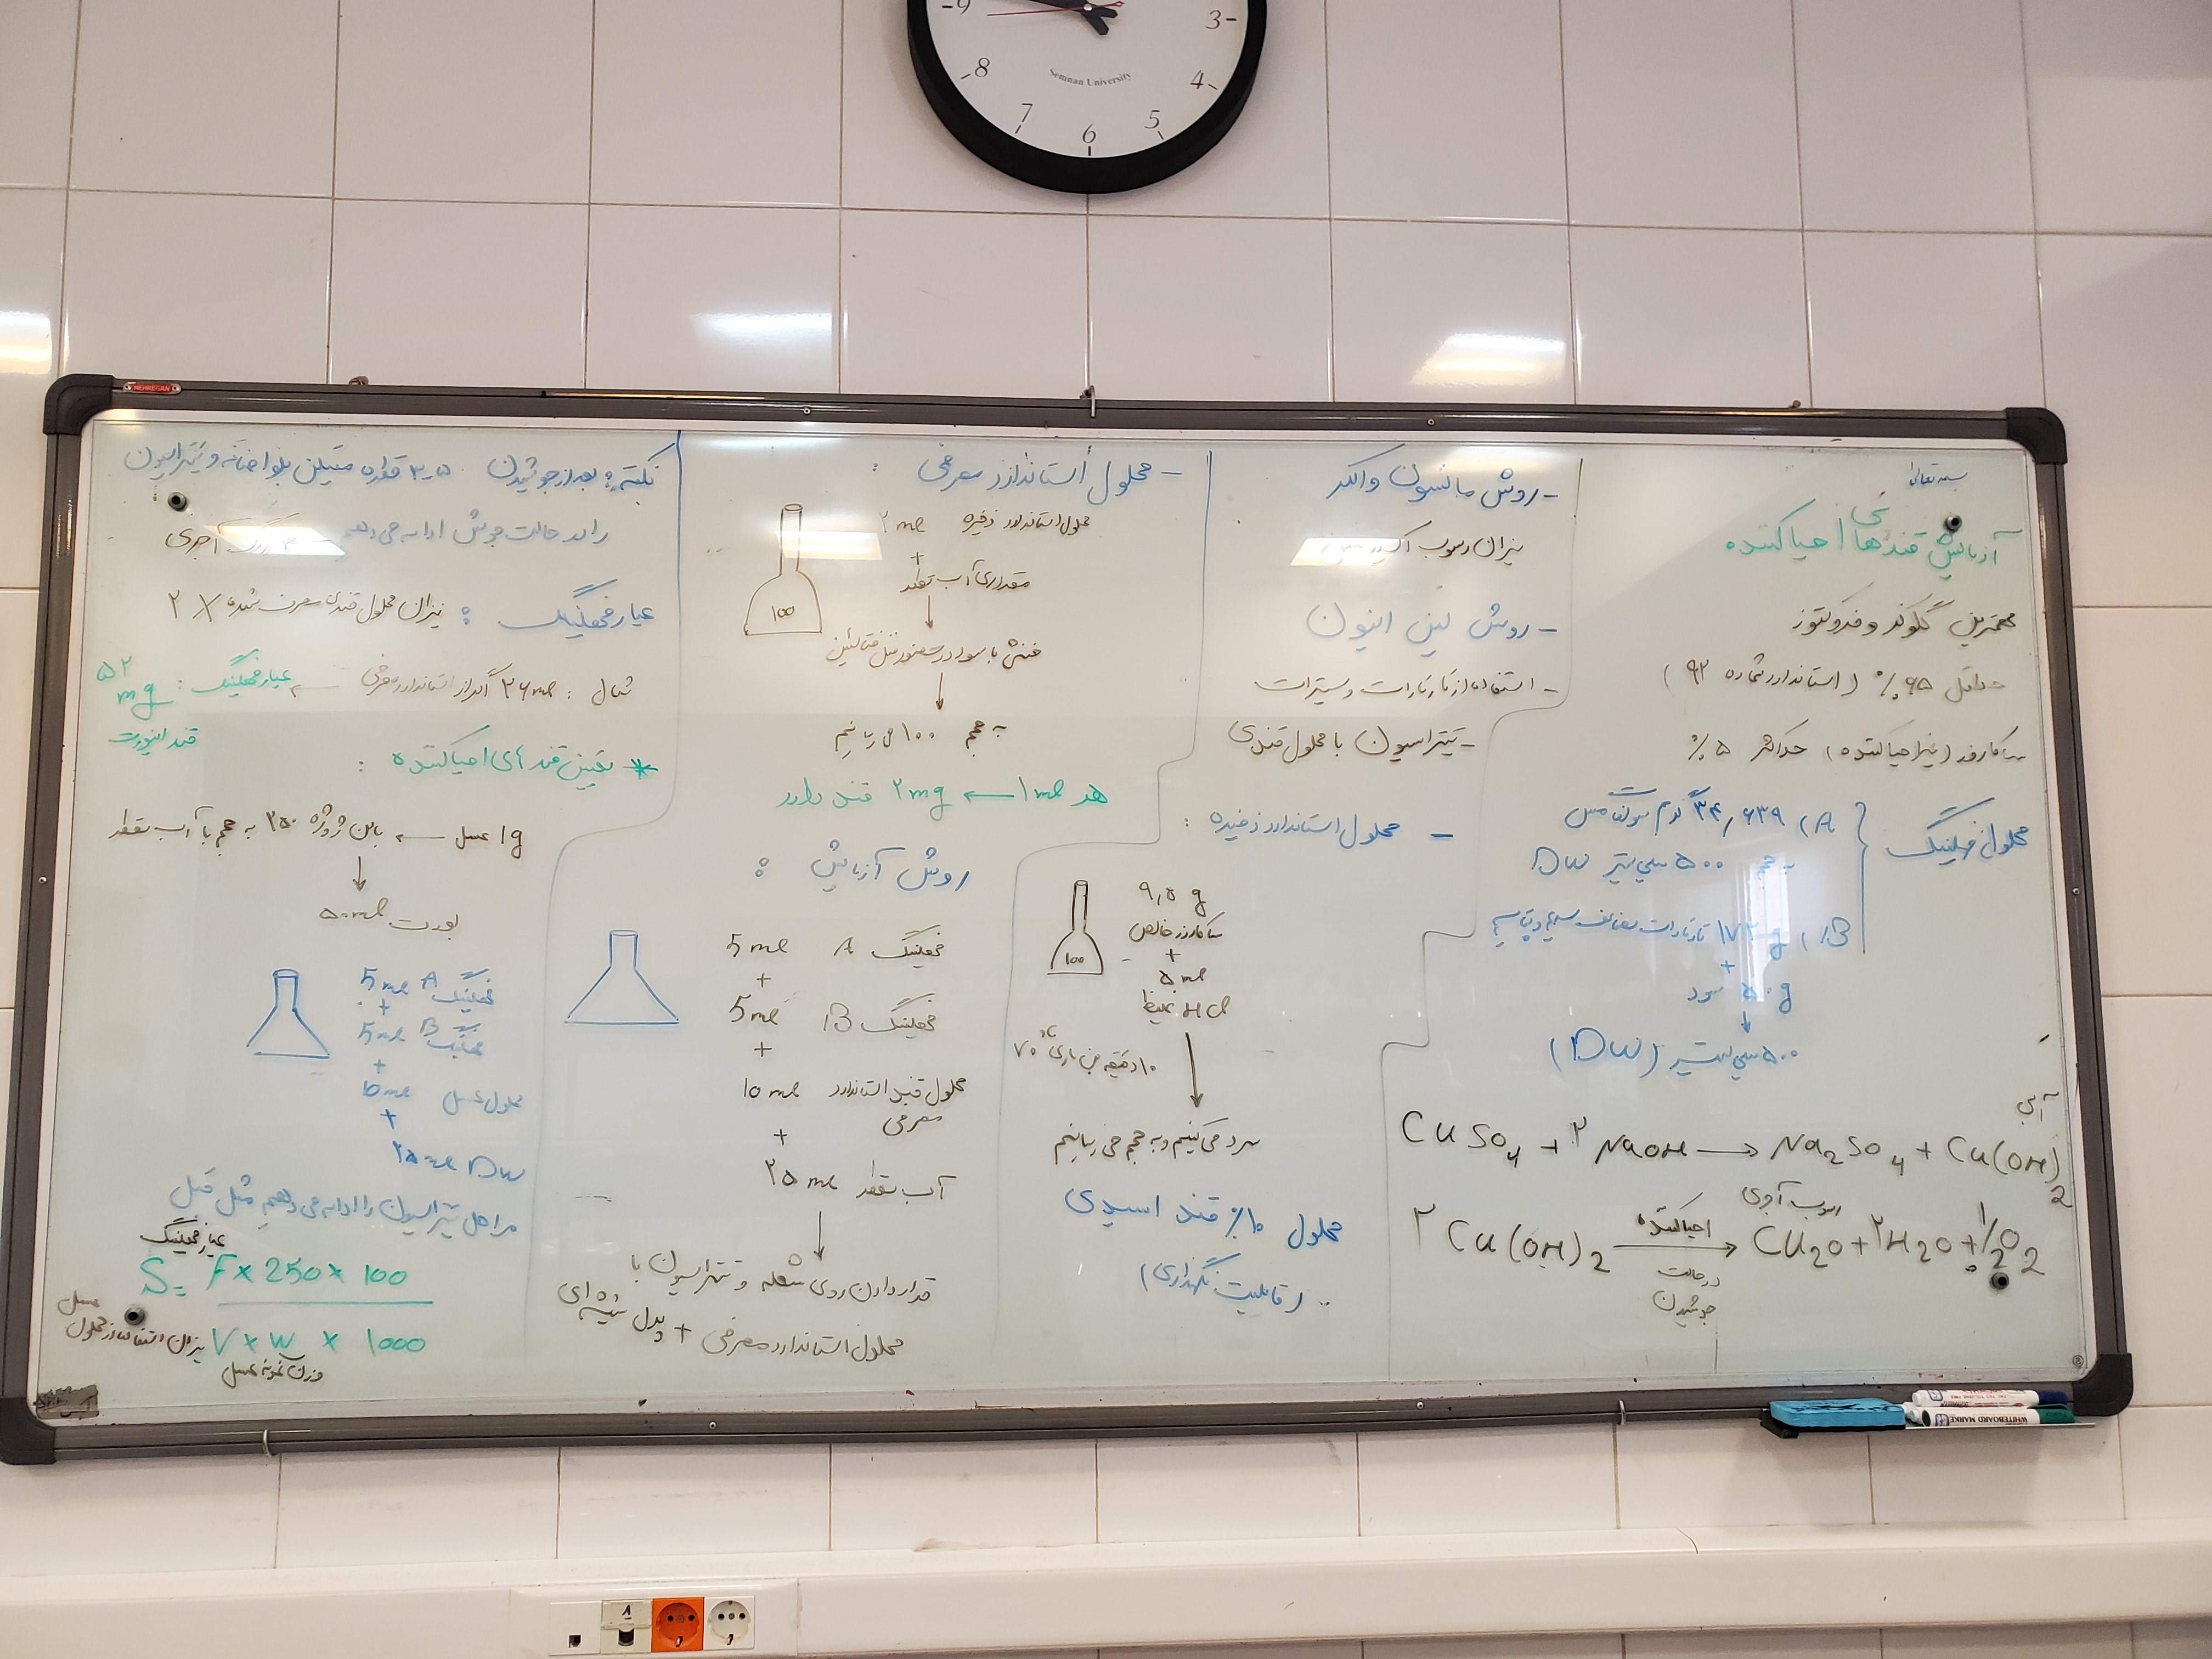 9
3
8
4
7
5
6
Semnan University
MEHREGAN
بسمه تعالی
آزمایش قندهای احیاکننده
مهمترین گلوکز و فروکتوز
حداقل ۶۵٪ (استاندارد شماره ۹۲)
ساکارز (غیراحیاکننده) حداکثر ۵٪
محلول فهلینگ
A) ۳۴,۶۳۹ گرم سولفات مس
به حجم ۵۰۰ سی سی لیتر DW
B) ۱۷۳ g تارتارات مضاعف سدیم و پتاسیم
+
۵۰ g سود
↓
۵۰۰ سی سی لیتر (DW)
آبی
CuSO4 + ۲ NaOH → Na2SO4 + Cu(OH)2
رسوب آجری
۲ Cu(OH)2 → Cu2O + ۲H2O + 1/2 O2
احیاکننده
در حالت
جوشیدن
- روش مانسون واکر
میزان رسوب اکسید مس
- روش لین اینون
- استفاده از تارتارات و سیترات
- تیتراسیون با محلول قندی
- محلول استاندارد ذخیره :
۹,۵ g
ساکارز خالص
+
۵ ml
HCl غلیظ
100
۱۰ دقیقه بن ماری ۷۰ °C
سرد می کنیم و به حجم می رسانیم
محلول ۱۰٪ قند اسیدی
(قابلیت نگهداری)
- محلول استاندارد مصرفی :
محلول استاندارد ذخیره ۲ ml
+
مقداری آب مقطر
100
↓
خنثی با سود در حضور فنل فتالئین
↓
به حجم ۱۰۰ می رسانیم
هر ۱ ml ← ۲ mg قند دارد
روش آزمایش :
5 ml فهلینگ A
+
5 ml فهلینگ B
+
10 ml محلول قند استاندارد
مصرفی
+
۲۵ ml آب مقطر
↓
قرار دادن روی شعله و تیتراسیون با
محلول استاندارد مصرفی + پرل شیشه ای
نکته : بعد از جوشیدن ۳-۵ قطره متیلن بلو اضافه و تیتراسیون
را در حالت جوش ادامه می دهیم رنگ آجری
عیار فهلینگ : میزان محلول قندی مصرف شده × ۲
مثال : ۲۶ ml اگر از استاندارد مصرفی ← عیار فهلینگ : ۵۲ mg
قند اینورت
* تعیین قندهای احیاکننده :
1g عسل ← بالن ژوژه ۲۵۰ به حجم با آب مقطر
↓
بورت ۵۰ ml
5 ml A فهلینگ
+
5 ml B فهلینگ
+
10 ml محلول عسل
+
۲۵ ml DW
مراحل تیتراسیون را ادامه می دهیم مثل قبل
عیار فهلینگ
S = F × 250 × 100
V × W × 1000
میزان استفاده از محلول عسل
وزن نمونه عسل
WHITEBOARD MARKER